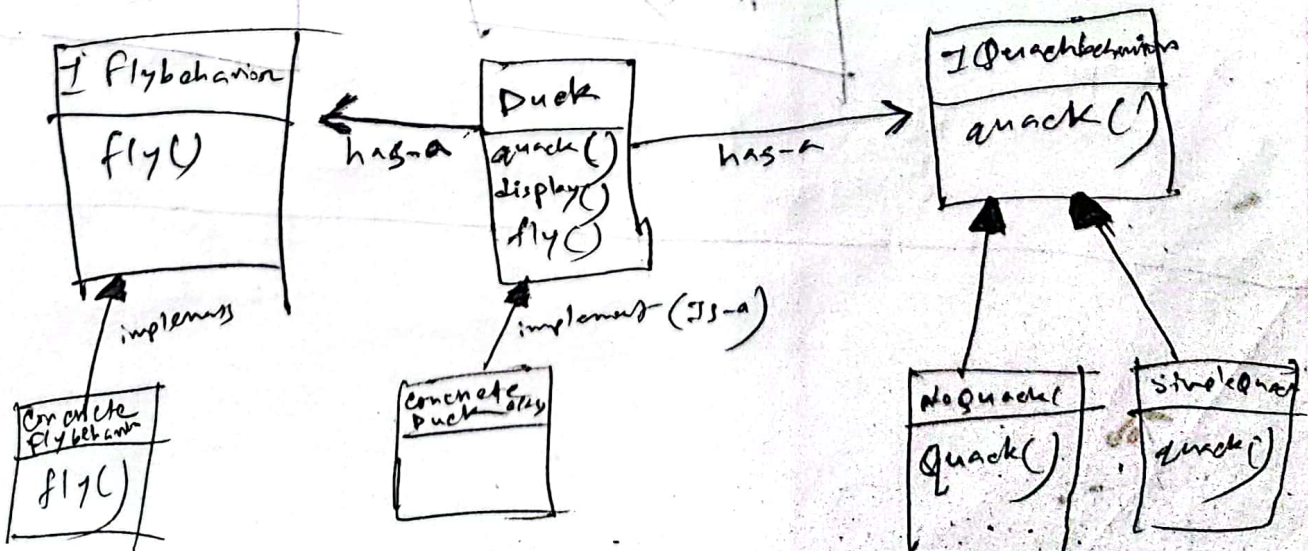 I Flybehavior
fly()
has-a
Duck
quack()
display()
fly()
has-a
I Quackbehaviors
quack()
implements
implement (Is-a)
Concrete
Flybehavior
fly()
Concrete
Duck
NoQuack(
Quack()
SimpleQuack
quack()